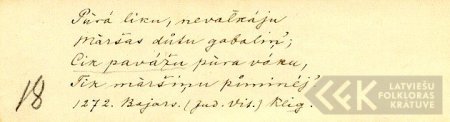 Pūrā liku, nevalkāju
Māršas dūtu gabaliņ';
Cik pavāžu pūra vóku,
Tik māršiņu pūminēj'.
18
1272. Bajārs. (jud. Vit.) Kliģ.
LATVIEŠU
FOLKLORAS
KRĀTUVE